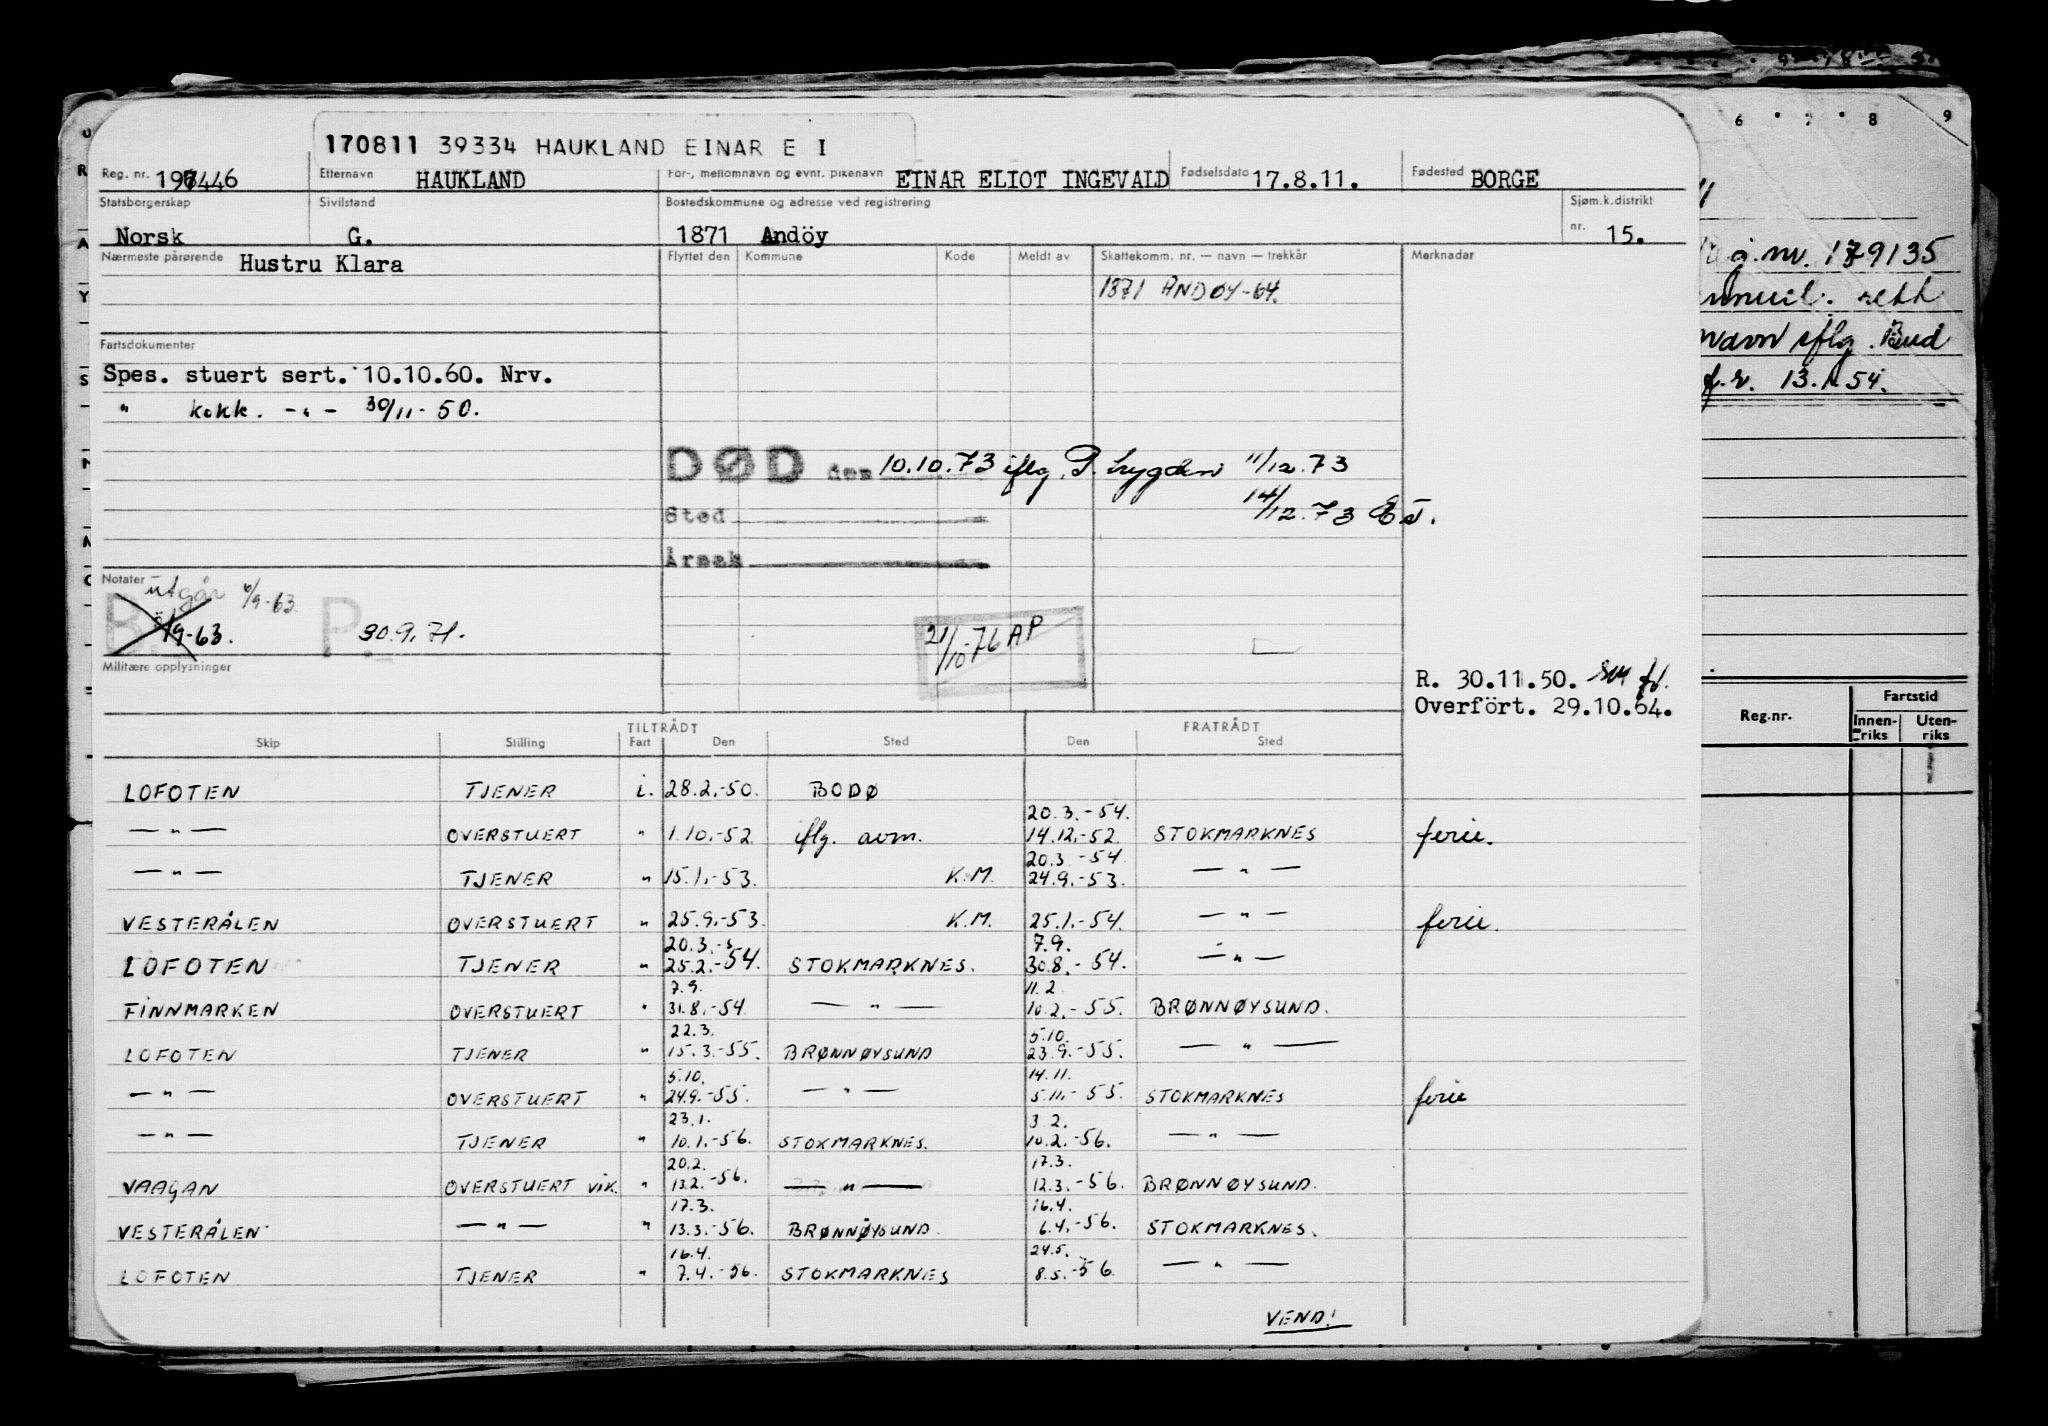 170811 39334 HAUKLAND EINAR E I
Reg. nr. 196446 Etternavn HAUKLAND For-, mellomnavn og evnt. pikenavn EINAR ELIOT INGEVALD Fødselsdato 17.8.11. Fødested BORGE
Statsborgerskap Sivilstand Bostedskommune og adresse ved registrering Sjøm.k.distrikt
Norsk G. 1871 Andöy nr. 15.
Nærmeste pårørende Hustru Klara Flyttet den Kommune Kode Meldt av Skattekomm. nr. — navn — trekkår Merknader
1871 ANDØY-64.
Fartsdokumenter
Spes. stuert sert. 10.10.60. Nrv.
" kokk. -"- 30/11-50.
DØD den 10.10.73 iflg. P. trygden 11/12.73
Sted 14/12.73
Årsak
Notater utgår 6/9-63.
B. /9-63. P. 30.9.71.
21/10-76 AP
Militære opplysninger
R. 30.11.50.
Overfört. 29.10.64.
TILTRÅDT FRATRÅDT
Skip Stilling Fart Den Sted Den Sted
LOFOTEN TJENER i. 28.2.-50. BODØ
20.3.-54.
—"— OVERSTUERT " 1.10.-52. iflg. avm. 14.12.-52. STOKMARKNES ferie.
20.3.-54.
—"— TJENER " 15.1.-53. K.M. 24.9.-53. —"—
VESTERÅLEN OVERSTUERT " 25.9.-53. K.M. 25.1.-54. —"— ferie.
20.3.- 7.9.
LOFOTEN TJENER " 25.2.-54. STOKMARKNES. 30.8.-54. —"—
7.9. 11.2.
FINNMARKEN OVERSTUERT " 31.8.-54. —"— 10.2.-55. BRØNNØYSUND.
22.3. 5.10.
LOFOTEN TJENER " 15.3.-55. BRØNNØYSUND 23.9.-55. —"—
5.10. 14.11.
—"— OVERSTUERT " 24.9.-55. —"— 5.11.-55. STOKMARKNES ferie
23.1. 3.2.
—"— TJENER " 10.1.-56. STOKMARKNES. 10.2.-56. —"—
20.2. 17.3.
VAAGAN OVERSTUERT VIK. " 13.2.-56. —"— 12.3.-56. BRØNNØYSUND.
17.3. 16.4.
VESTERÅLEN —"— " 13.3.-56. BRØNNØYSUND. 6.4.-56. STOKMARKNES.
16.4. 24.5.
LOFOTEN TJENER " 7.4.-56. STOKMARKNES 8.5.-56. —"—
VEND!
6 7 8 9
nr. 179135
rett
navn iflg.
f.r. 13.1.54.
Reg.nr. Fartstid
Innen-riks Uten-riks